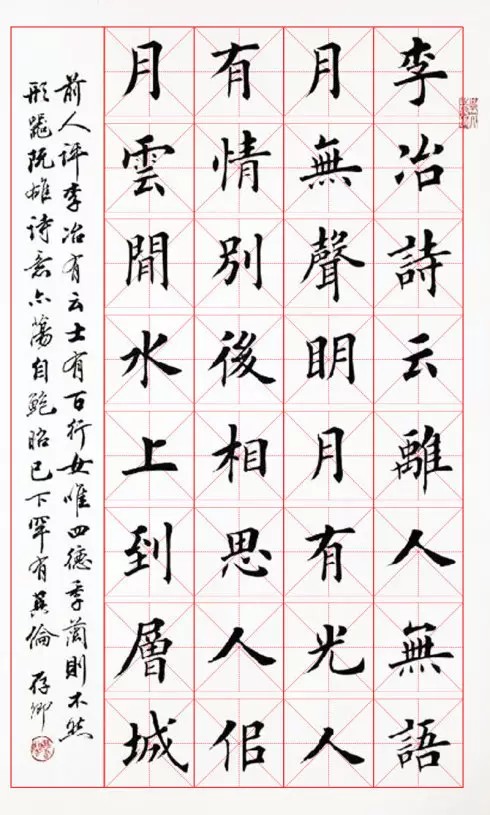 李冶詩云離人無語
月無聲明月有光人
有情別後相思人佀
月雲間水上到層城
前人評李冶有云士有百行女唯四德季蘭則不然
形氣既雄詩意亦蕩自鮑昭已下罕有其倫 存卿